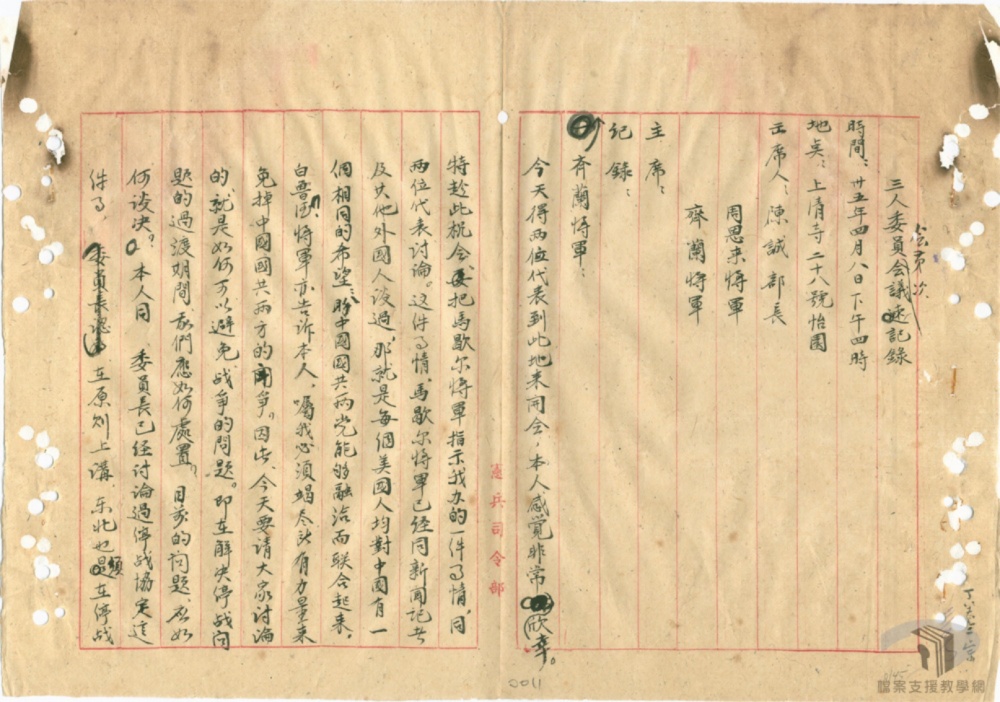 三人委員會議速記錄
會第次
時間：卅五年四月八日下午四時
地点：上清寺二十八號怡園
出席人：陳誠部長
周恩來將軍
齊蘭將軍
主席：
記錄：
齐蘭將軍：
今天得両位代表到此地来開会，本人感覚非常欣幸。
憲兵司令部
特趁此机会要把馬歇尔將軍指示我办的一件事情，同
两位代表討論。这件事情，馬歇尔將軍已经同新闻记者
及其他外國人谈過，那就是每個美國人均對中國有一
個相同的希望：盼中國國共两党能够融洽而联合起来。
白鲁德將軍亦告诉本人，囑我必須竭尽所有力量来
免掉中國國共两方的鬥争。因此，今天要请大家讨論
的，就是如何可以避免战争的問题。即在解决停战问
题的過渡期間，我們應如何處置，目前的问题，应如
何谈决？本人同　委員長已经讨論過停战協定這
件事，委員長認為在原则上講，东北也是在停战
0011
檔案支援教學網